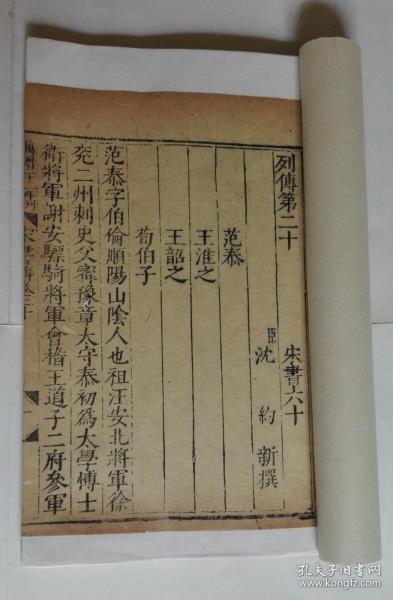 列傳第二十　宋書六十
臣沈約新撰
范泰
王淮之
王韶之
荀伯子
范泰字伯倫順陽山陰人也祖汪安北將軍徐
兖二州刺史父寗豫章太守泰初爲太學博士
衛將軍謝安驃騎將軍會稽王道子二府參軍
孔夫子旧书网
www.kongfz.com